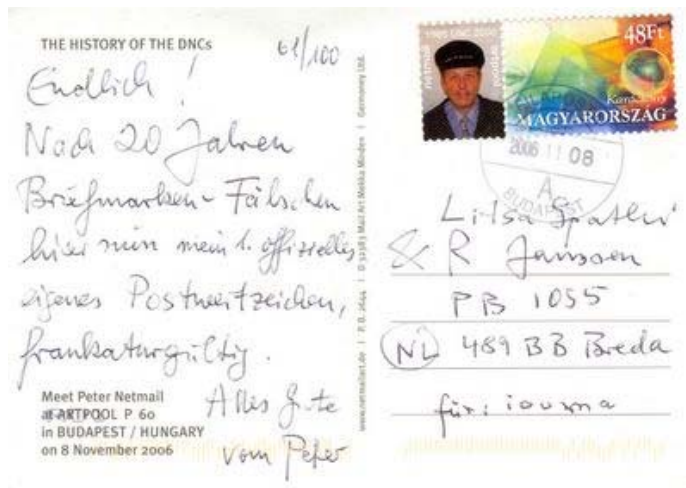 THE HISTORY OF THE DNCs
61/100
Endlich!
Nach 20 Jahren
Briefmarken-Fälschen
hier nun mein 1. offizielles
eigenes Postwertzeichen,
frankaturgültig.
Alles Gute
vom Peter
Meet Peter Netmail
at ARTPOOL P 60
in BUDAPEST / HUNGARY
on 8 November 2006
www.netmailart.de | P. B. 2644 | D 32383 Mail Art Mekka Minden | Germoney Ltd.
netmail
48Ft
MAGYARORSZÁG
2006 11 08
A
BUDAPEST
Litsa Spathi
& R Janssen
PB 1055
NL 489 BB Breda
für: